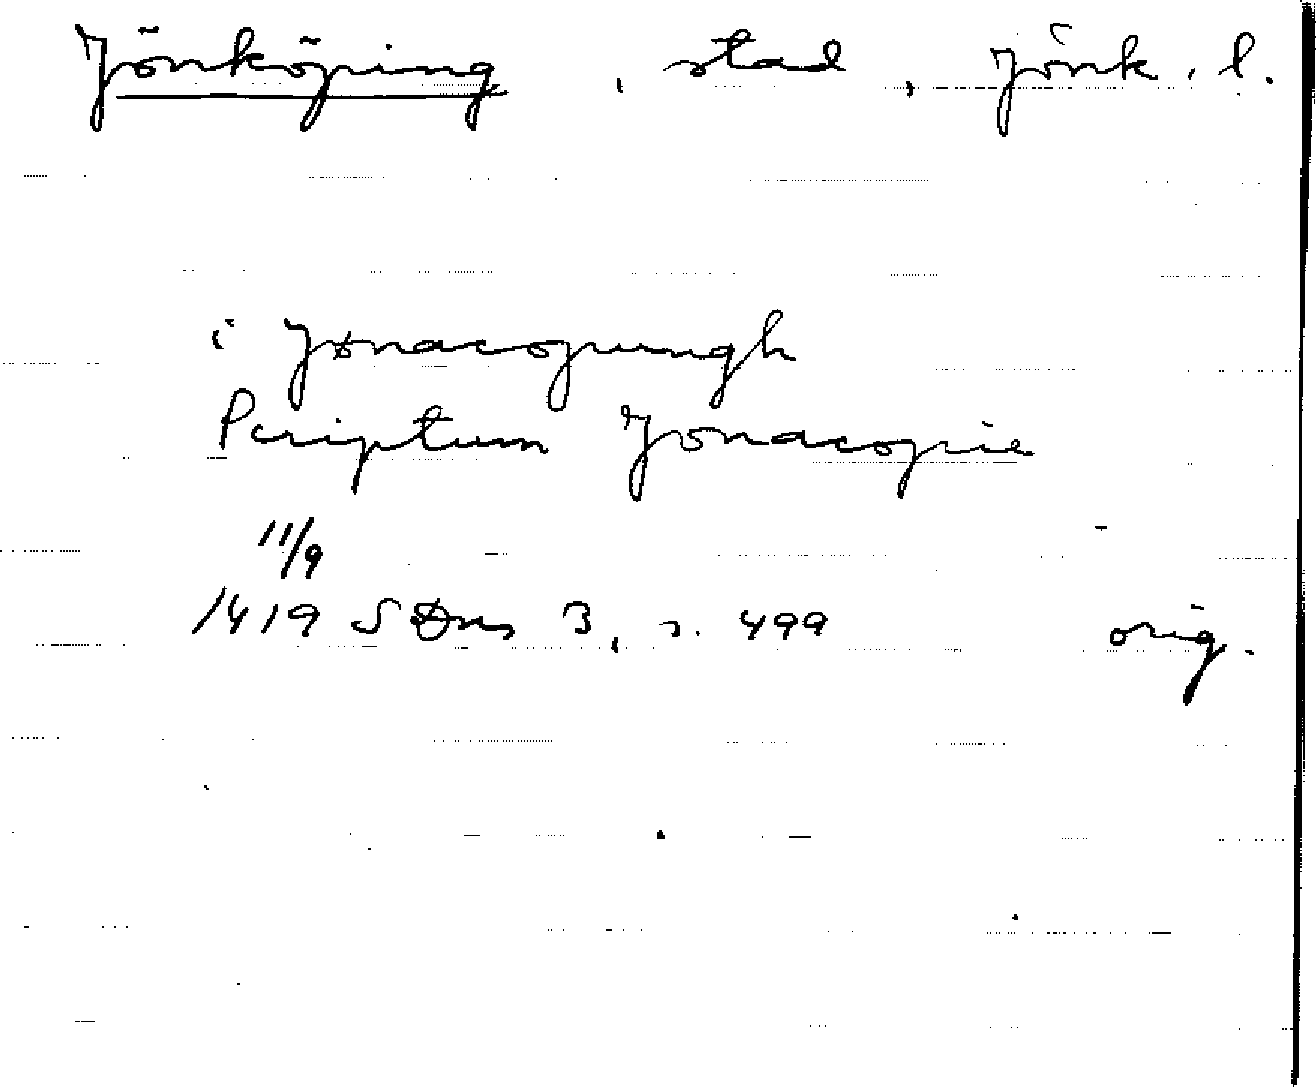 Jönköping, stad, Jönk. l.
i Jønacopungh
Scriptum Jonacopie
11/9
1419 SDns 3, s. 499 orig.